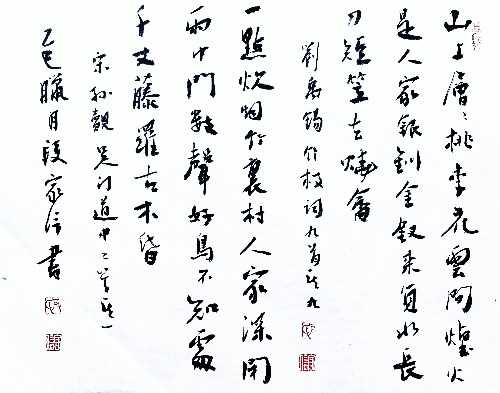 山上層〻桃李花雲間煙火
是人家銀釧金釵来負水長
刀短笠去燒畬
劉禹錫竹枝词九首其九
一點炊烟竹裏村人家深閉
雨中門數聲好鳥不知處
千丈藤蘿古木昏
宋孫覿吴门道中二首其一
乙巳臘月段家信書